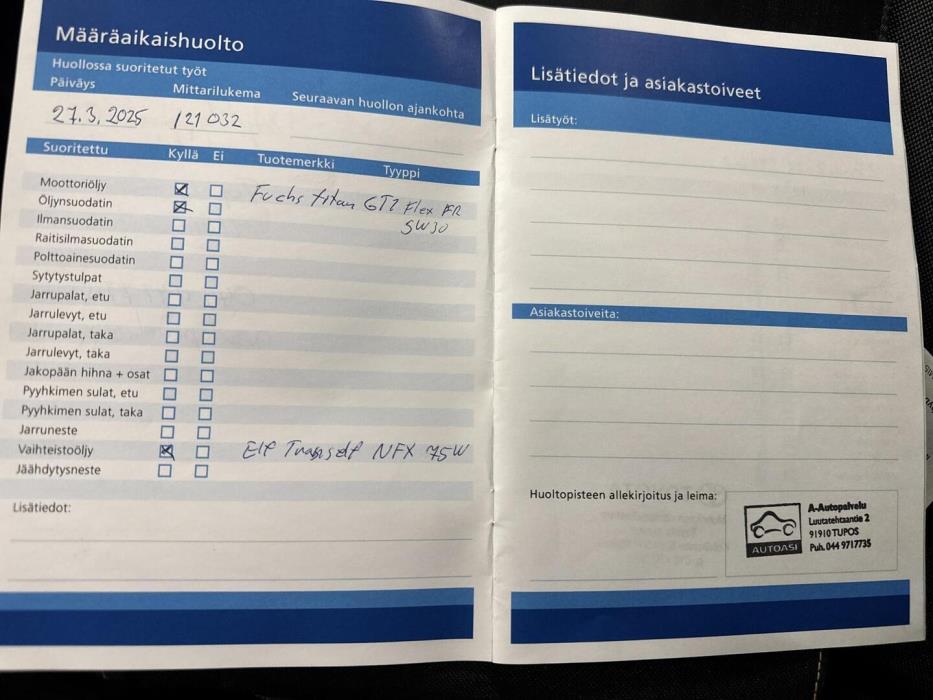 Määräaikaishuolto
Huollossa suoritetut työt
Päiväys Mittarilukema Seuraavan huollon ajankohta
27.3.2025 121 032
Suoritettu Kyllä Ei Tuotemerkki Tyyppi
Moottoriöljy Fuchs titan GT1 Flex FR
5W30
Öljynsuodatin
Ilmansuodatin
Raitisilmasuodatin
Polttoainesuodatin
Sytytystulpat
Jarrupalat, etu
Jarrulevyt, etu
Jarrupalat, taka
Jarrulevyt, taka
Jakopään hihna + osat
Pyyhkimen sulat, etu
Pyyhkimen sulat, taka
Jarruneste
Vaihteistoöljy Elf Tranself NFX 75W
Jäähdytysneste
Lisätiedot:
Lisätiedot ja asiakastoiveet
Lisätyöt:
Asiakastoiveita:
Huoltopisteen allekirjoitus ja leima:
AUTOASI
A-Autopalvelu
Luutatehtaantie 2
91910 TUPOS
Puh. 044 9717735